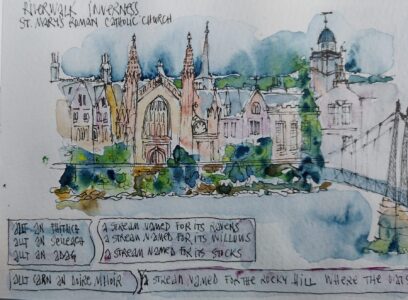 RIVERWALK INVERNESS
ST. MARY'S ROMAN CATHOLIC CHURCH
ALT AN A STREAM NAMED FOR ITS RAVENS
ALT AN SEILEACH A STREAM NAMED FOR ITS WILLOWS
ALT AN ADAG A STREAM NAMED FOR ITS STOCKS
ALT CARN AN DOIRE MHOIR A STREAM NAMED FOR THE ROCKY HILL WHERE THE OATS